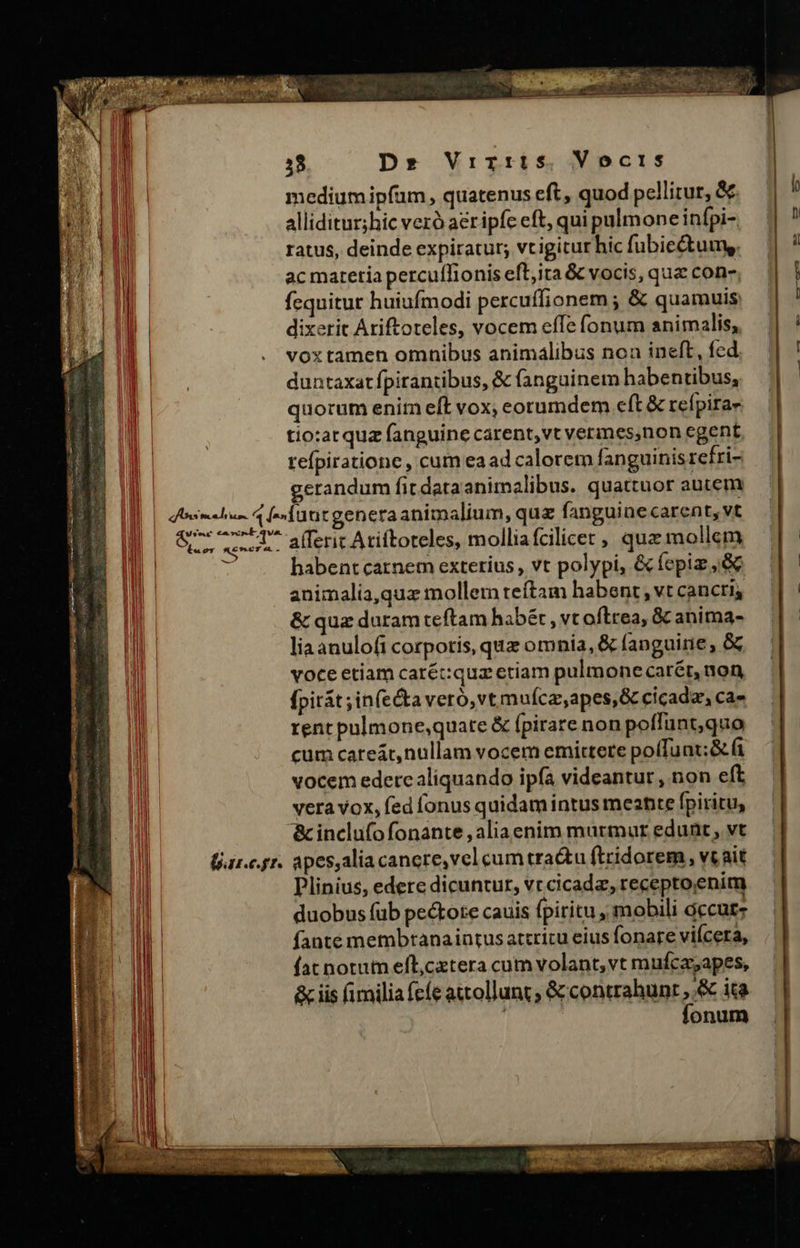 38 De Vitiis Vocis
medium ipſum, quatenus eſt, quod pellitur, &
alliditur; hic verò aër ipſe eſt, qui pulmone inſpi-
ratus, deinde expiratur; vt igitur hic ſubiectum,
ac materia percuſſionis eſt, ita & vocis, quæ con-
ſequitur huiuſmodi percuſſionem; & quamuis
dixerit Ariſtoteles, vocem eſſe ſonum animalis,
vox tamen omnibus animalibus non ineſt, ſed
duntaxat ſpirantibus, & ſanguinem habentibus,
quorum enim eſt vox, eorumdem eſt & reſpira-
tio: at quæ ſanguine carent, vt vermes, non egent
reſpiratione, cum ea ad calorem ſanguinis refri-
gerandum ſit data animalibus. quattuor autem
Animalium q̃ ſan- ſunt genera animalium, quæ ſanguine carent, vt
guine carent qua- aſſerit Ariſtoteles, mollia ſcilicet, quæ mollem
tuor genera. habent carnem exterius, vt polypi, & ſepiæ, &
animalia, quæ mollem teſtam habent, vt cancri,
& quæ duram teſtam habẽt, vt oſtrea, & anima-
lia anuloſi corporis, quæ omnia, & ſanguine, &
voce etiam carẽt: quæ etiam pulmone carẽt, non
ſpirãt; inſecta verò, vt muſcæ, apes, & cicadæ, ca-
rent pulmone, quare & ſpirare non poſſunt, quo
cum careãt, nullam vocem emittere poſſunt: & ſi
vocem edere aliquando ipſa videantur, non eſt
vera vox, ſed ſonus quidam intus meante ſpiritu,
& incluſo ſonante, alia enim murmur edunt, vt
li. 11. c. 51. apes, alia canere, vel cum tractu ſtridorem, vt ait
Plinius, edere dicuntur, vt cicadæ, recepto enim
duobus ſub pectore cauis ſpiritu, mobili occur-
ſante membrana intus attritu eius ſonare viſcera,
ſat notum eſt, cætera cum volant, vt muſcæ, apes,
& iis ſimilia ſeſe attollunt, & contrahunt, & ita
ſonum